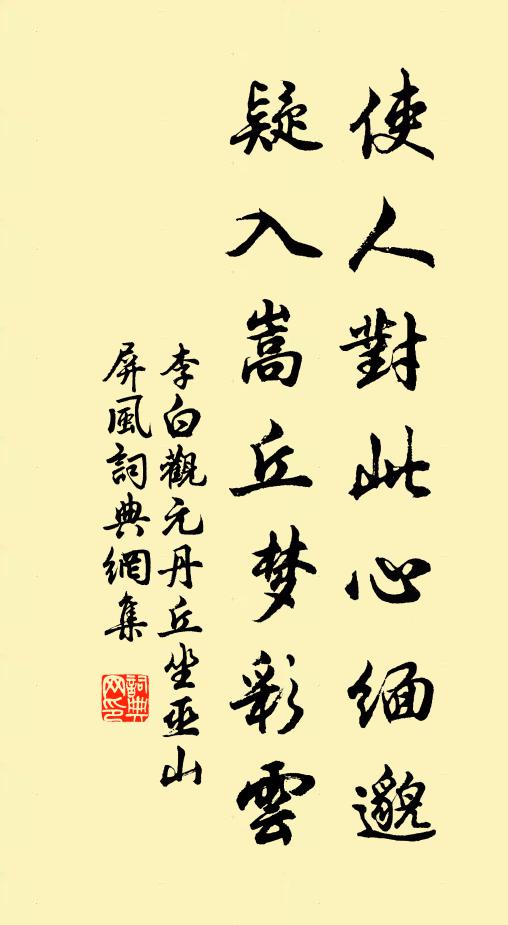 使人對此心緬邈
疑入嵩丘梦彩雲
李白觀元丹丘坐巫山
屏風詞典網集
詞典网印